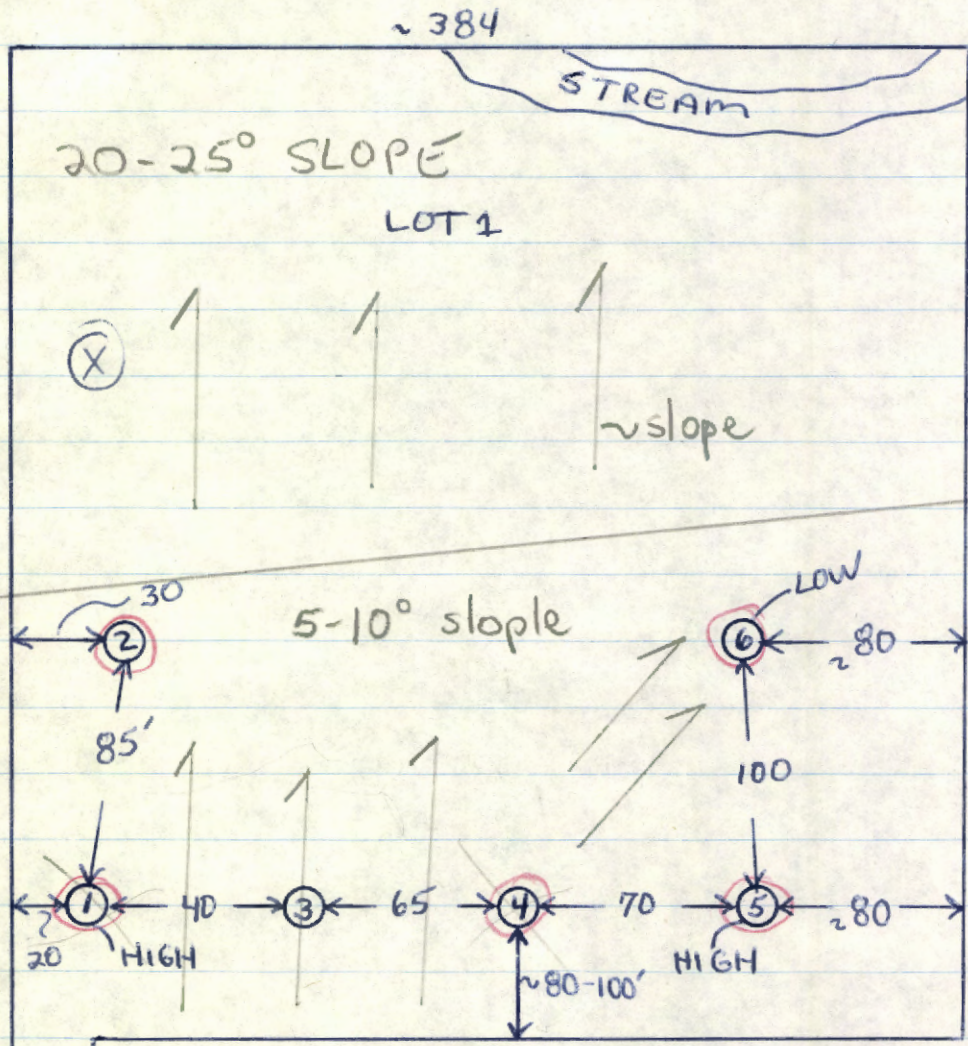 ~ 384
STREAM
20-25° SLOPE
LOT 1
X
~slope
30
LOW
2
5-10° slople
6
~80
85'
100
1
40
3
65
4
70
5
~80
~20
HIGH
HIGH
~80-100'